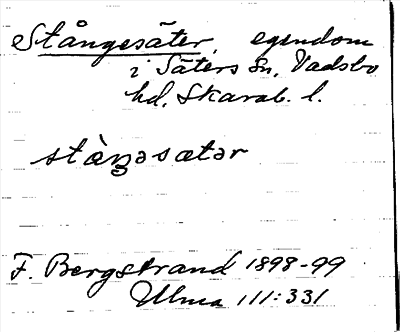 Stångesäter, egendom
i Säters sn, Vadsbo
hd, Skarab. l.
stàŋəsætər
F. Bergstrand 1898-99
Ulma 111:331